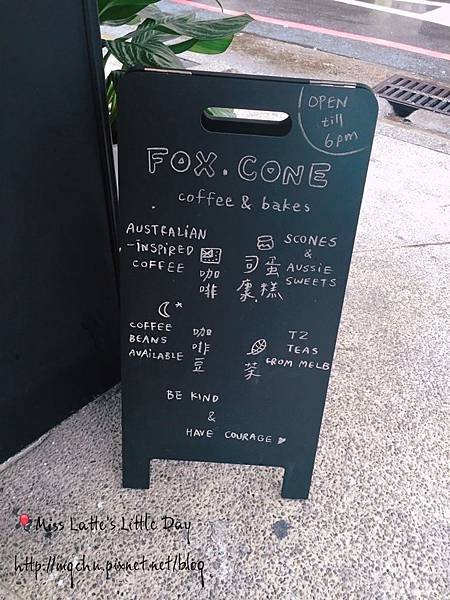 OPEN
till
6pm
FOX.CONE
coffee & bakes
AUSTRALIAN
-INSPIRED
COFFEE
咖啡
SCONES
&
AUSSIE
SWEETS
司康
蛋糕
COFFEE
BEANS
AVAILABLE
咖啡豆
T2
TEAS
FROM MELB
茶
BE KIND
&
HAVE COURAGE
Miss Latte's Little Day
http://mqchu.pixnet.net/blog